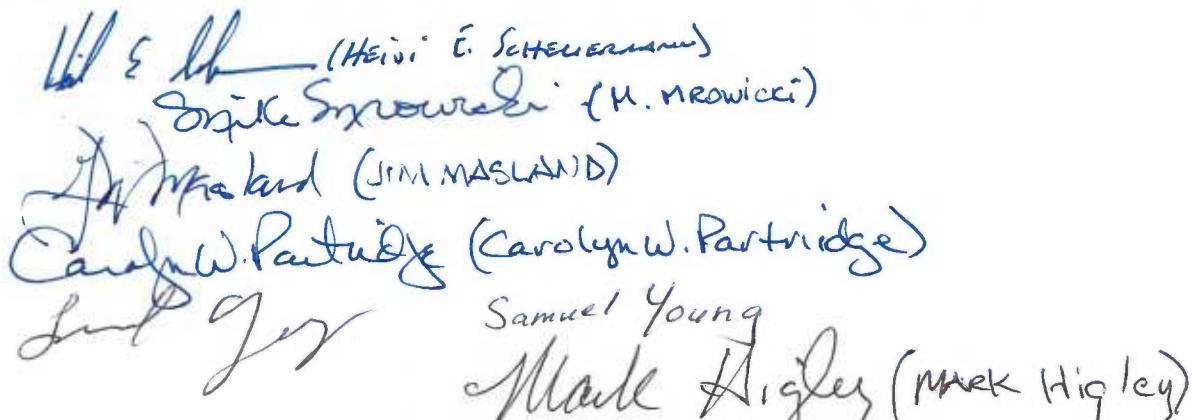 Heidi E. (HEIDI E. SCHEUERMANN)
Mrowicki (M. MROWICKI)
Masland (JIM MASLAND)
Carolyn W. Partridge (Carolyn W. Partridge)
Samuel Young
Mark Higley (MARK Higley)